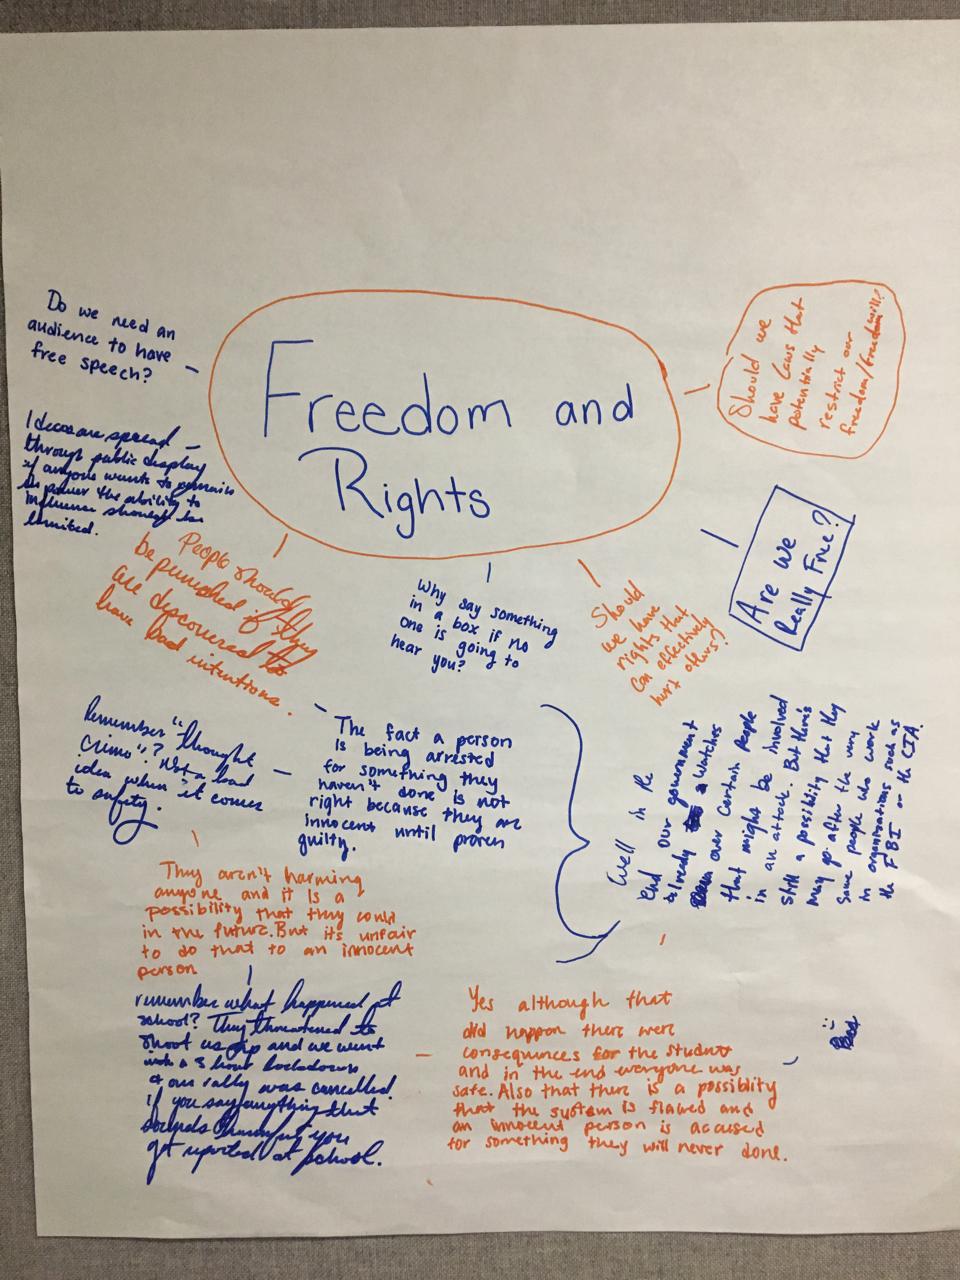 Freedom and
Rights
Do we need an
audience to have
free speech?
Ideas are spread
through public display
if anyone wants to remain
in power the ability to
influence should be
limited.
People should
be punished if they
are discovered to
have bad intentions.
Why say something
in a box if no
one is going to
hear you?
Should
we have
rights that
can effectively
hurt others?
Should we
have laws that
potentially
restrict our
freedom/freewill?
Are we
Really Free?
Remember "thought
crime"? Not a bad
idea when it comes
to safety.
The fact a person
is being arrested
for something they
haven't done is not
right because they are
innocent until proven
guilty.
Well in the
end our government
already watches
over certain people
that might be involved
in an attack. But there's
still a possibility that they
may go after the very
same people who work
in organizations such as
the FBI or the CIA.
They aren't harming
anyone and it is a
possibility that they could
in the future. But its unfair
to do that to an innocent
person
remember what happened at
school? They threatened to
shoot us up and we went
into a 3 hour lockdown
& our rally was cancelled.
if you say anything that
sounds harmful you
get reported at school.
Yes although that
did happen there were
consequnces for the student
and in the end everyone was
safe. Also that there is a possiblity
that the system is flawed and
an innocent person is accused
for something they will never done.